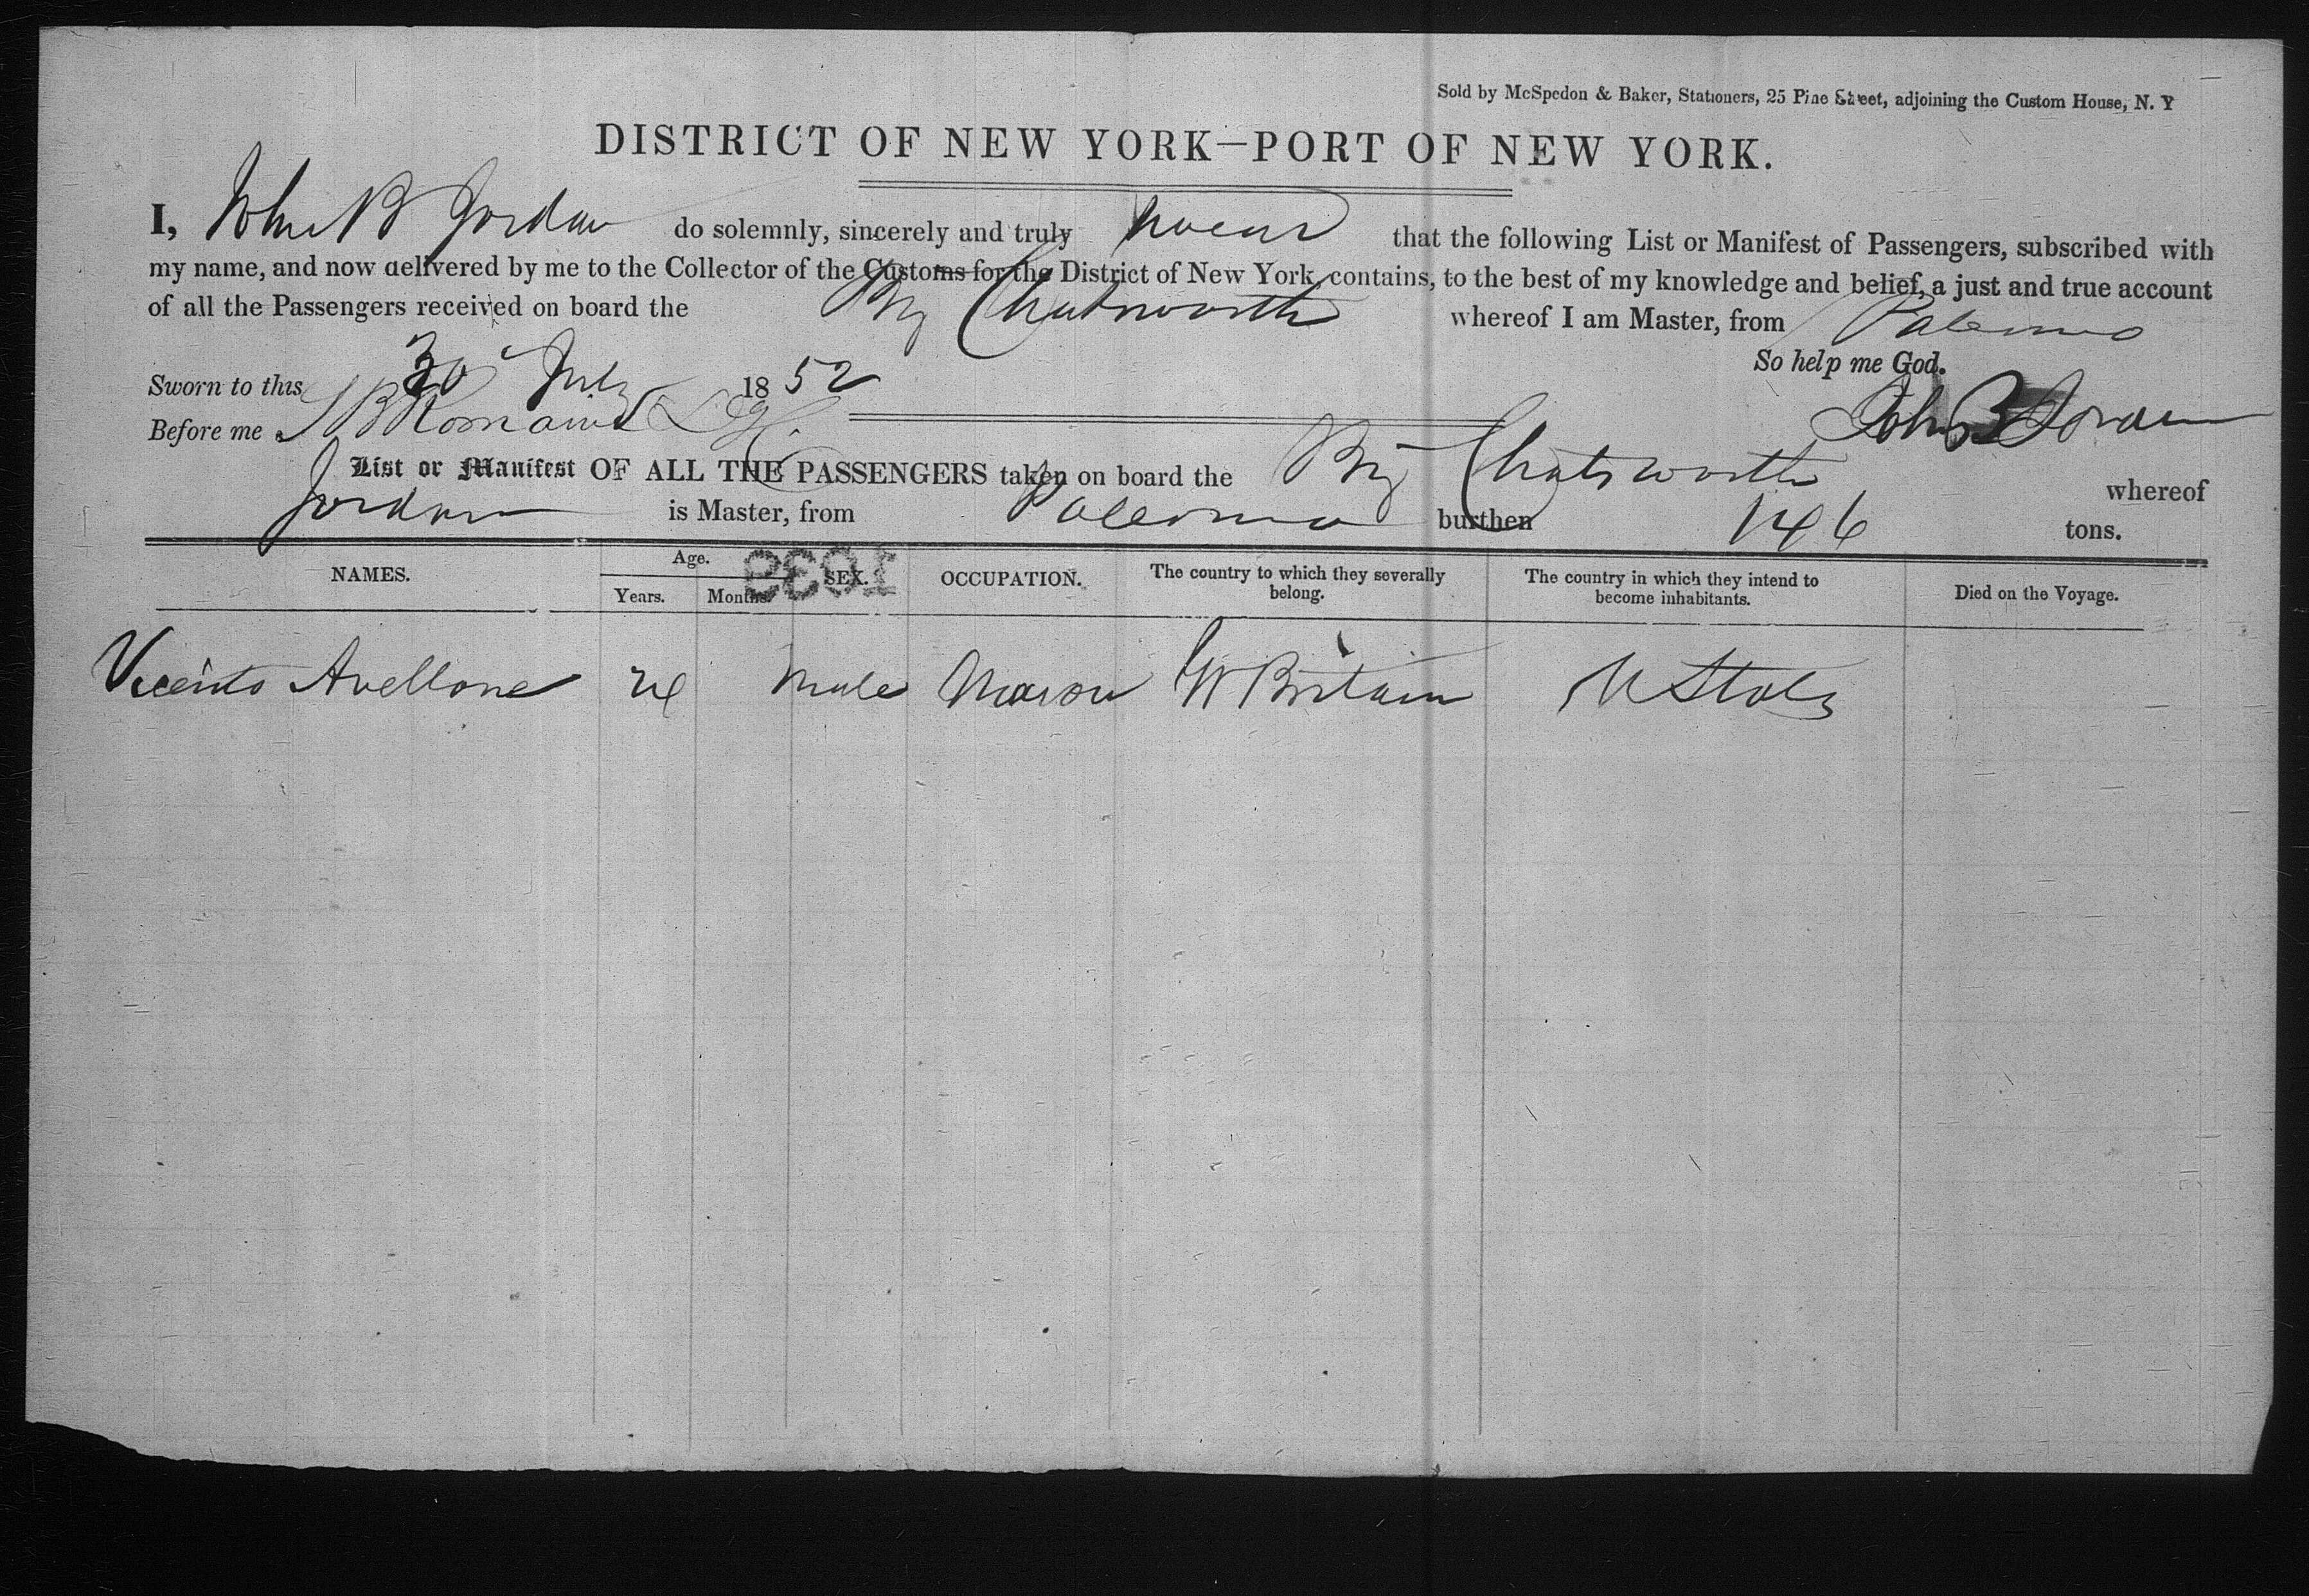 Sold by McSpedon & Baker, Stationers, 25 Pine Street, adjoining the Custom House, N. Y
DISTRICT OF NEW YORK—PORT OF NEW YORK.
I, John B Jordan do solemnly, sincerely and truly swear that the following List or Manifest of Passengers, subscribed with
my name, and now delivered by me to the Collector of the Customs for the District of New York, contains, to the best of my knowledge and belief, a just and true account
of all the Passengers received on board the Brig Chatsworth whereof I am Master, from Palermo
So help me God.
Sworn to this 30 July 1852
Before me S B Romaine John B Jordan
List or Manifest OF ALL THE PASSENGERS taken on board the Brig Chatsworth whereof
Jordan is Master, from Palermo burthen 146 tons.
NAMES. Age. Years. Months. SEX. OCCUPATION. The country to which they severally belong. The country in which they intend to become inhabitants. Died on the Voyage.
1039
Vicento Avellone 24 Male Mason Gr Britain U States